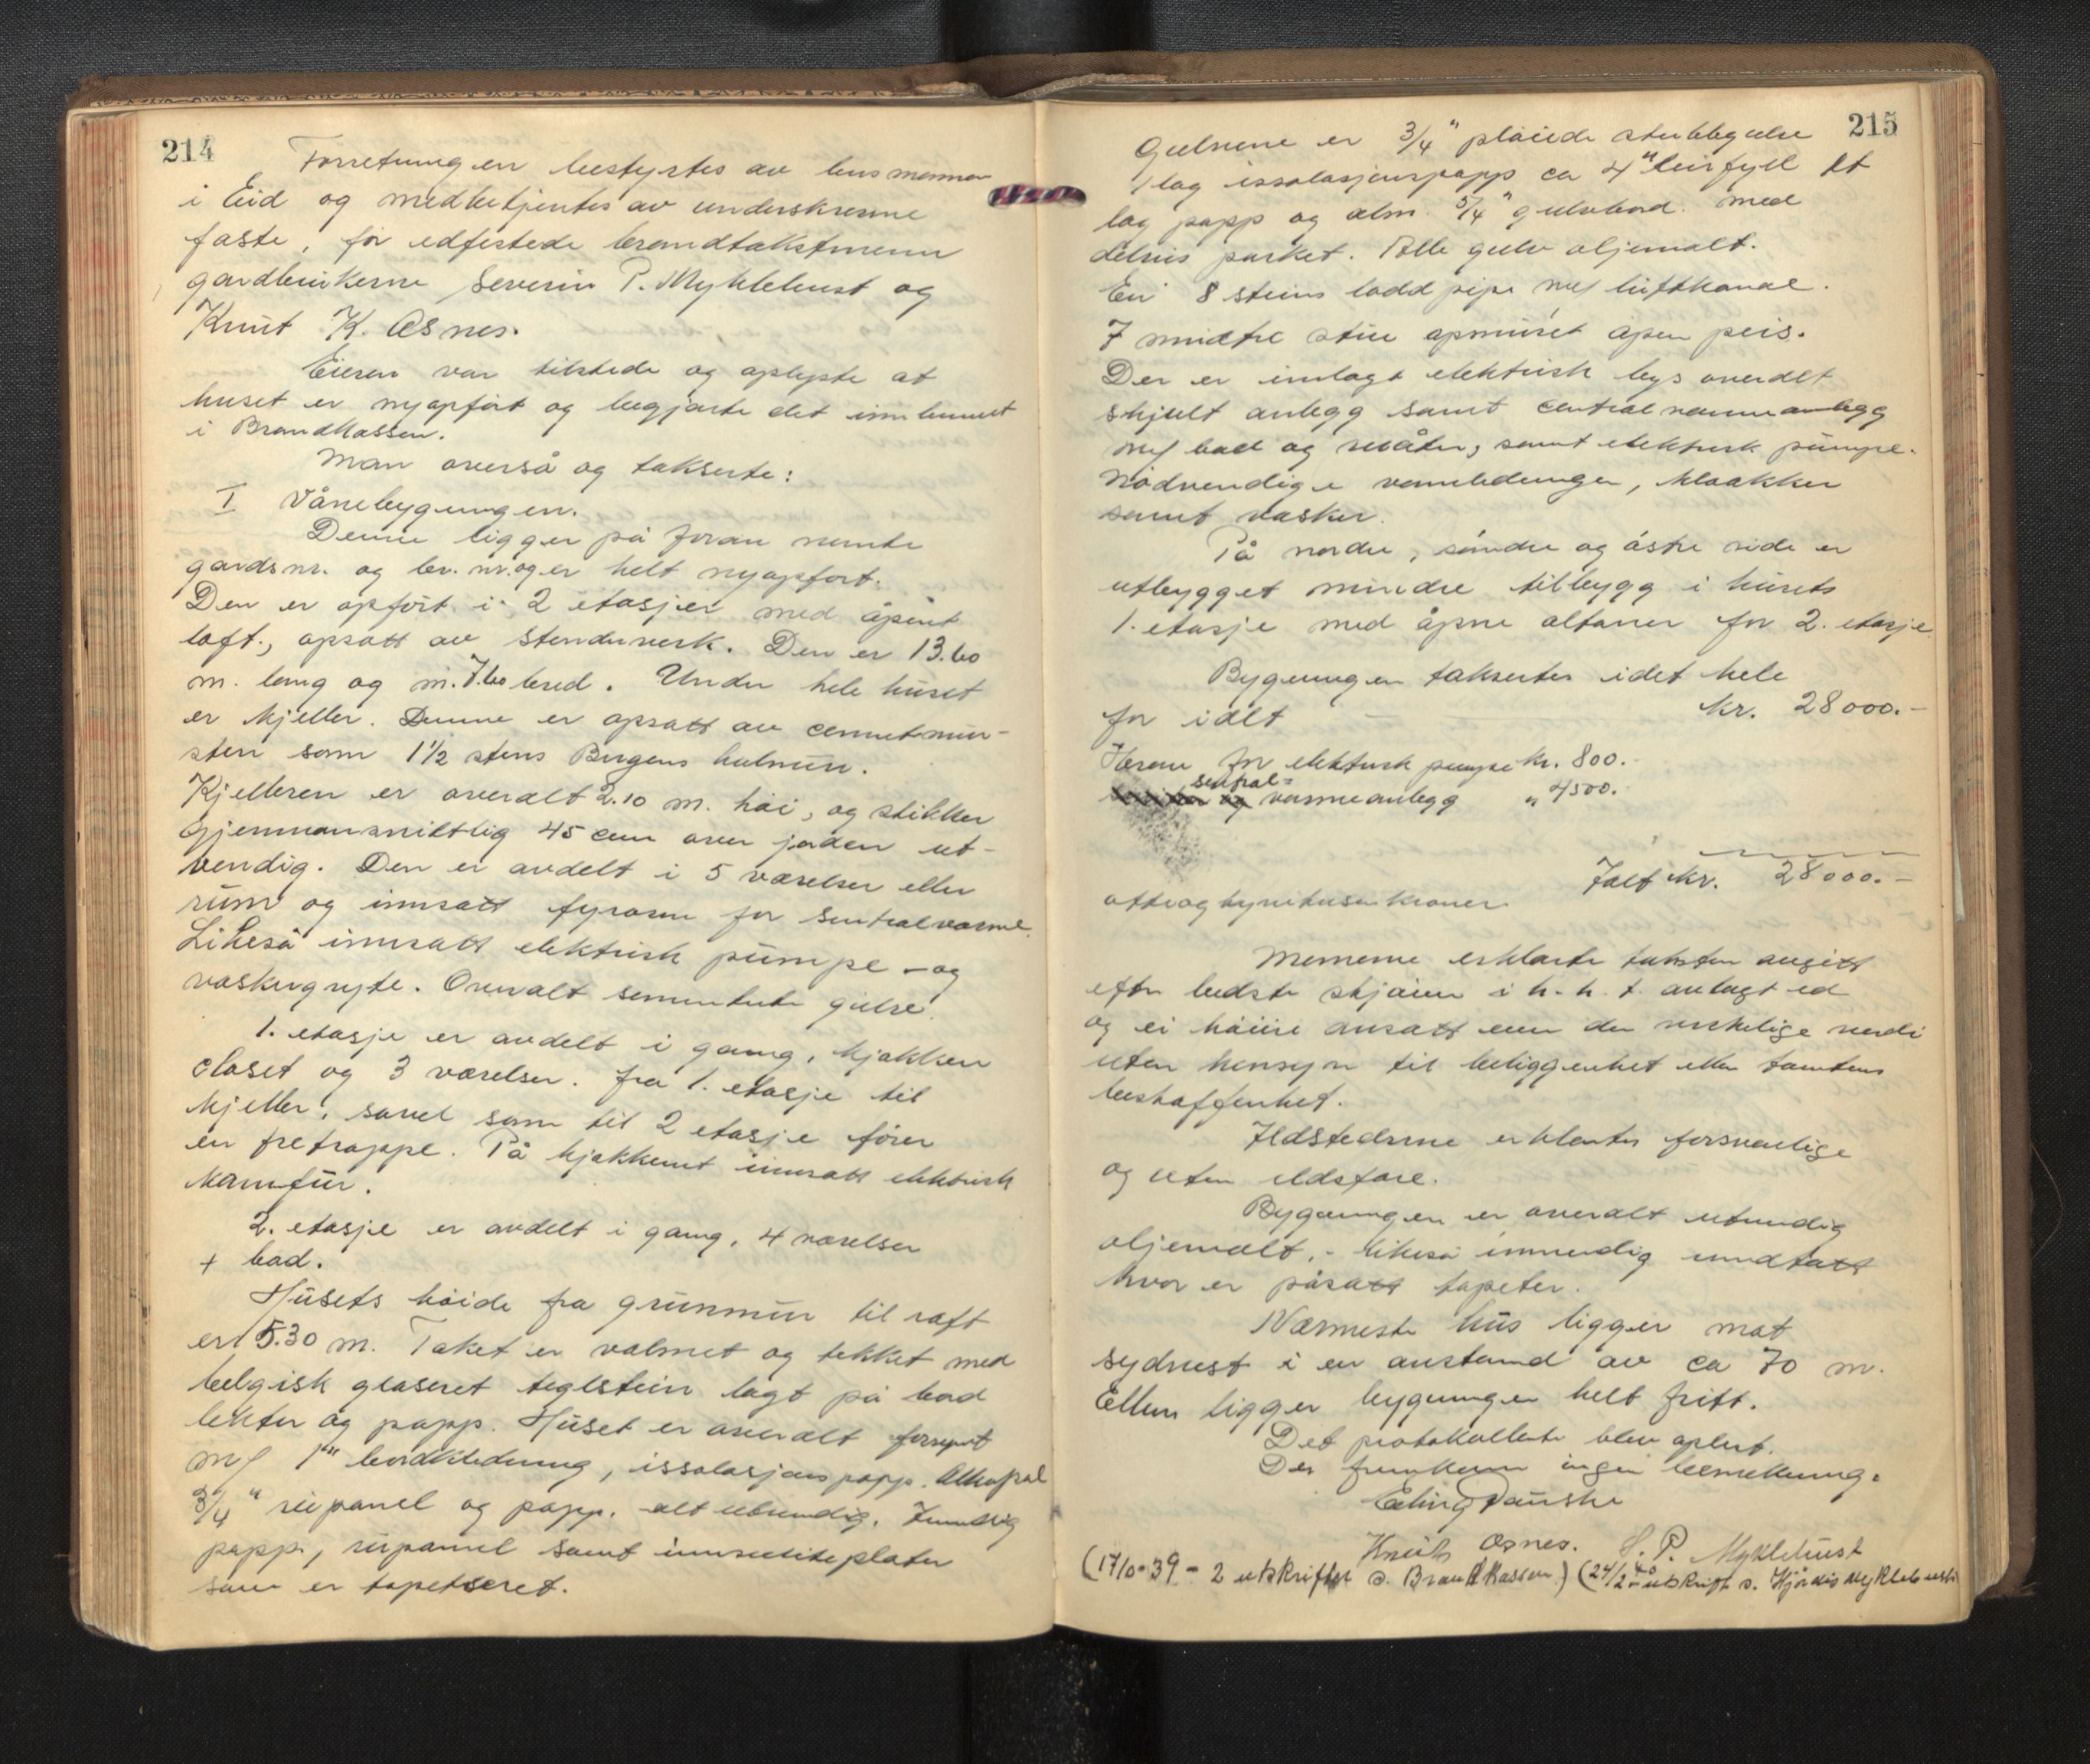 214
Forretningen bestyrtes av lensmannen
i Eid og medbetjentes av underskrevne
faste, før edfestede brandtakstmenn
gardbrukerne Severin P. Myklebust og
Knut K. Osnes.
Eieren var tilstede og oplyste at
huset er nyopført og begjærte det innlemmet
i Brandkassen.
Man overså og takserte:
I Vånebygningen.
Denne ligger på foran nemte
gardsnr. og br. nr. og er helt nyopført.
Den er opført i 2 etasjer med åpent
loft, opsatt av stenderverk. Den er 13.60
m. lang og m. 7.60 bred. Under hele huset
er kjeller. Denne er opsatt av cementmur-
sten som 1 1/2 stens Bergens hulmur.
Kjelleren er overalt 2.10 m. høi, og stikker
gjennemsnittlig 45 cm over jorden ut-
vendig. Den er avdelt i 5 værelser eller
rum og innsatt fyrovn for sentralvarme.
Likeså innsatt elektrisk pumpe - og
vaskegryte. Overalt sementerte gulve.
1. etasje er avdelt i gang, kjøkken
closet og 3 værelser. fra 1. etasje til
kjeller, såvel som til 2 etasje fører
en tretrappe. På kjøkkenet innsatt elektrisk
komfur.
2. etasje er avdelt i gang, 4 værelser
+ bad.
Husets høide fra grunmur til raft
er 5.30 m. Taket er valmet og tekket med
belgisk glaseret teglstein lagt på bord
lekter og papp. Huset er overalt forsynt
m/ 1" bordkledning, issolasjonspapp.
3/4" rupanel og papp. alt utvendig. Innvendig
papp, rupannel samt innsulite plater
som er tapetseret.
215
Gulvene er 3/4" pløiede stubbgulve
1 lag issolasjonspapp ca 4" leirfyll et
lag papp og alm. 5/4" gulvbord. med
delvis parket. Alle gulv oljemalt.
En 8 steins lodd pipe m/ luftkanal.
I midtre stue opmuret åpen peis.
Der er innlagt elektrisk lys overalt
skjult anlegg samt centralvarmeanlegg
m/ bad og , samt elektrisk pumpe.
Nødvendige vannledninger, kloakker
samt vasker.
På nordre, søndre og østre side er
utbygget mindre tilbygg i husets
1. etasje med åpne altaner for 2. etasje
Bygningen takseres i det hele
for ialt kr. 28000.-
Herav for elektrisk pumpe kr. 800.-
sentral=
varmeanlegg " 4500.-
Ialt kr. 28000.-
otteogtyvetusen kroner.
Mennene erklærte taksten angitt
efter bedste skjøien i h. h. t. avlagt ed
og ei høiere ansatt enn den virkelige verdi
uten hensyn til beliggenhet eller tomtens
beskaffenhet.
Ildstederne erklærtes forsvarlige
og uten ildsfare.
Bygningen er overalt utvendig
oljemalt, - likeså innvendig undtatt
hvor er påsatt tapeter.
Nærmeste hus ligger mot
sydvest i en avstand av ca 70 m.
Ellers ligger bygningen helt fritt.
Det protokollerte blev oplest.
Der fremkom ingen bemerkning.
Erling Dauske
Knut Osnes. S. P. Myklebust
(17/10-39 - 2 utskrifter s. Brandkassen) (24/2-40 utskrift s. Hjørdis Myklebust)